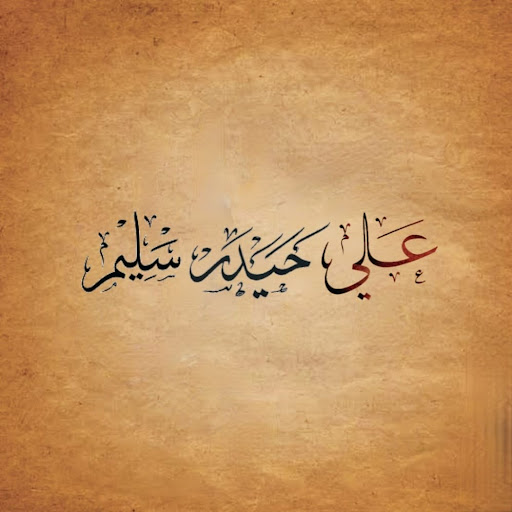 عَلي حَيدَر سَلِيم